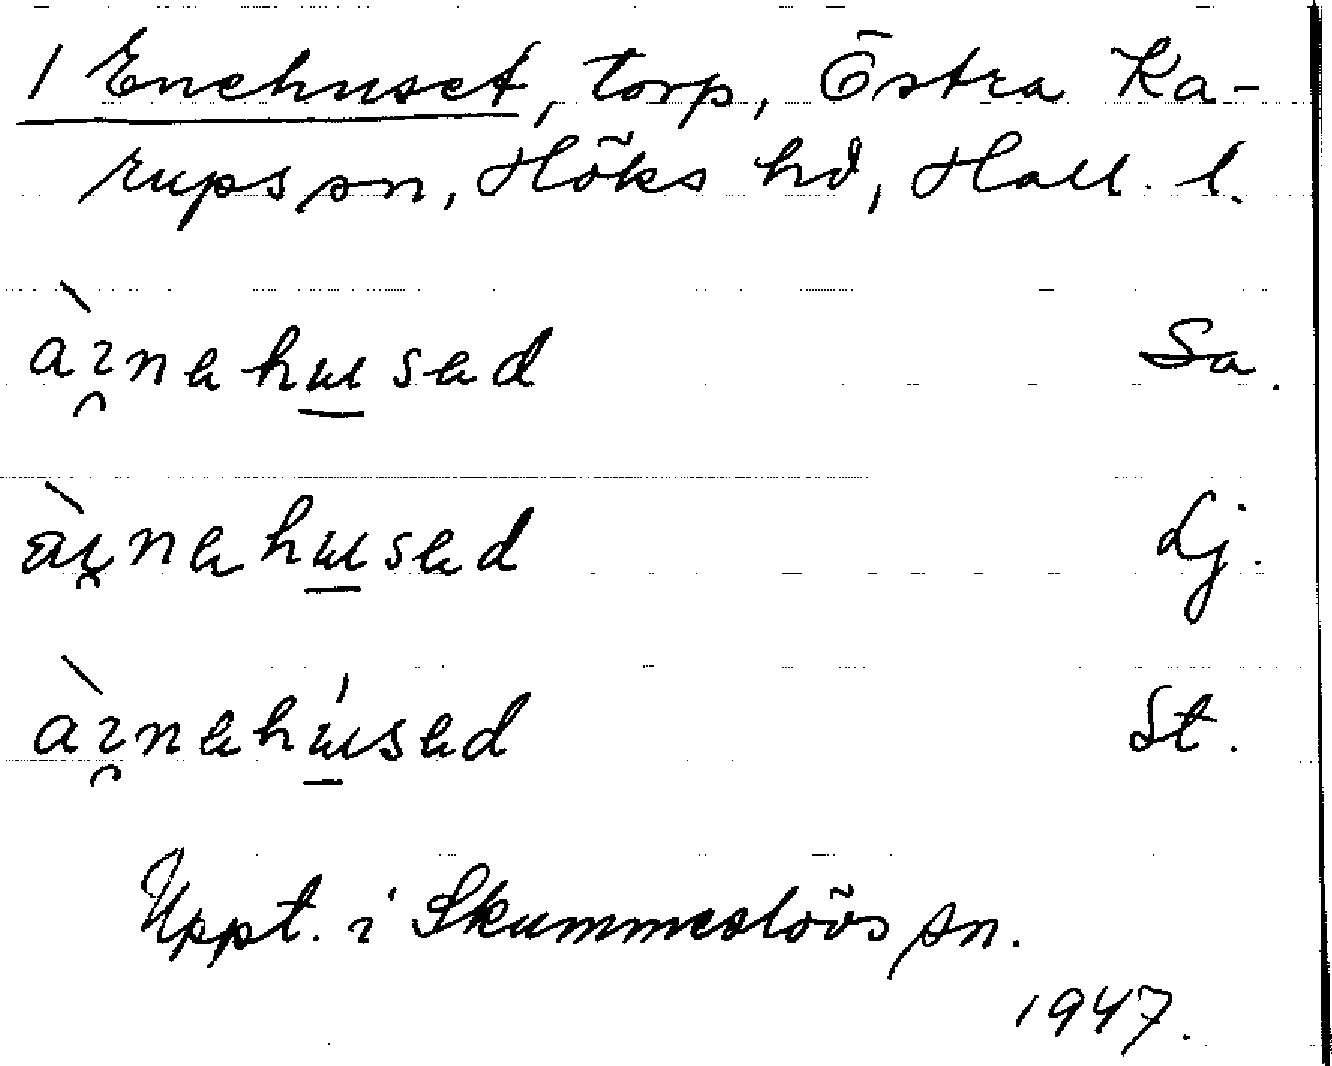 1 Enehuset, torp, Östra Ka-
rups sn, Höks hd, Hall. l.
àı̯nahusad Sa.
àı̯nahusad Lj.
àı̯nahúsad St.
Uppt. i Skummeslövs sn.
1947.